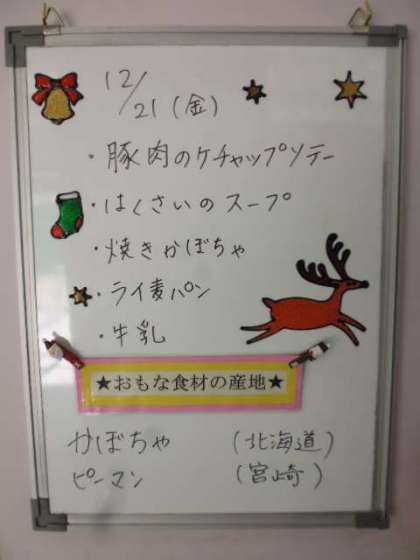 12/21(金)
・豚肉のケチャップソテー
・はくさいのスープ
・焼きかぼちゃ
・ライ麦パン
・牛乳
★おもな食材の産地★
かぼちゃ (北海道)
ピーマン (宮崎)